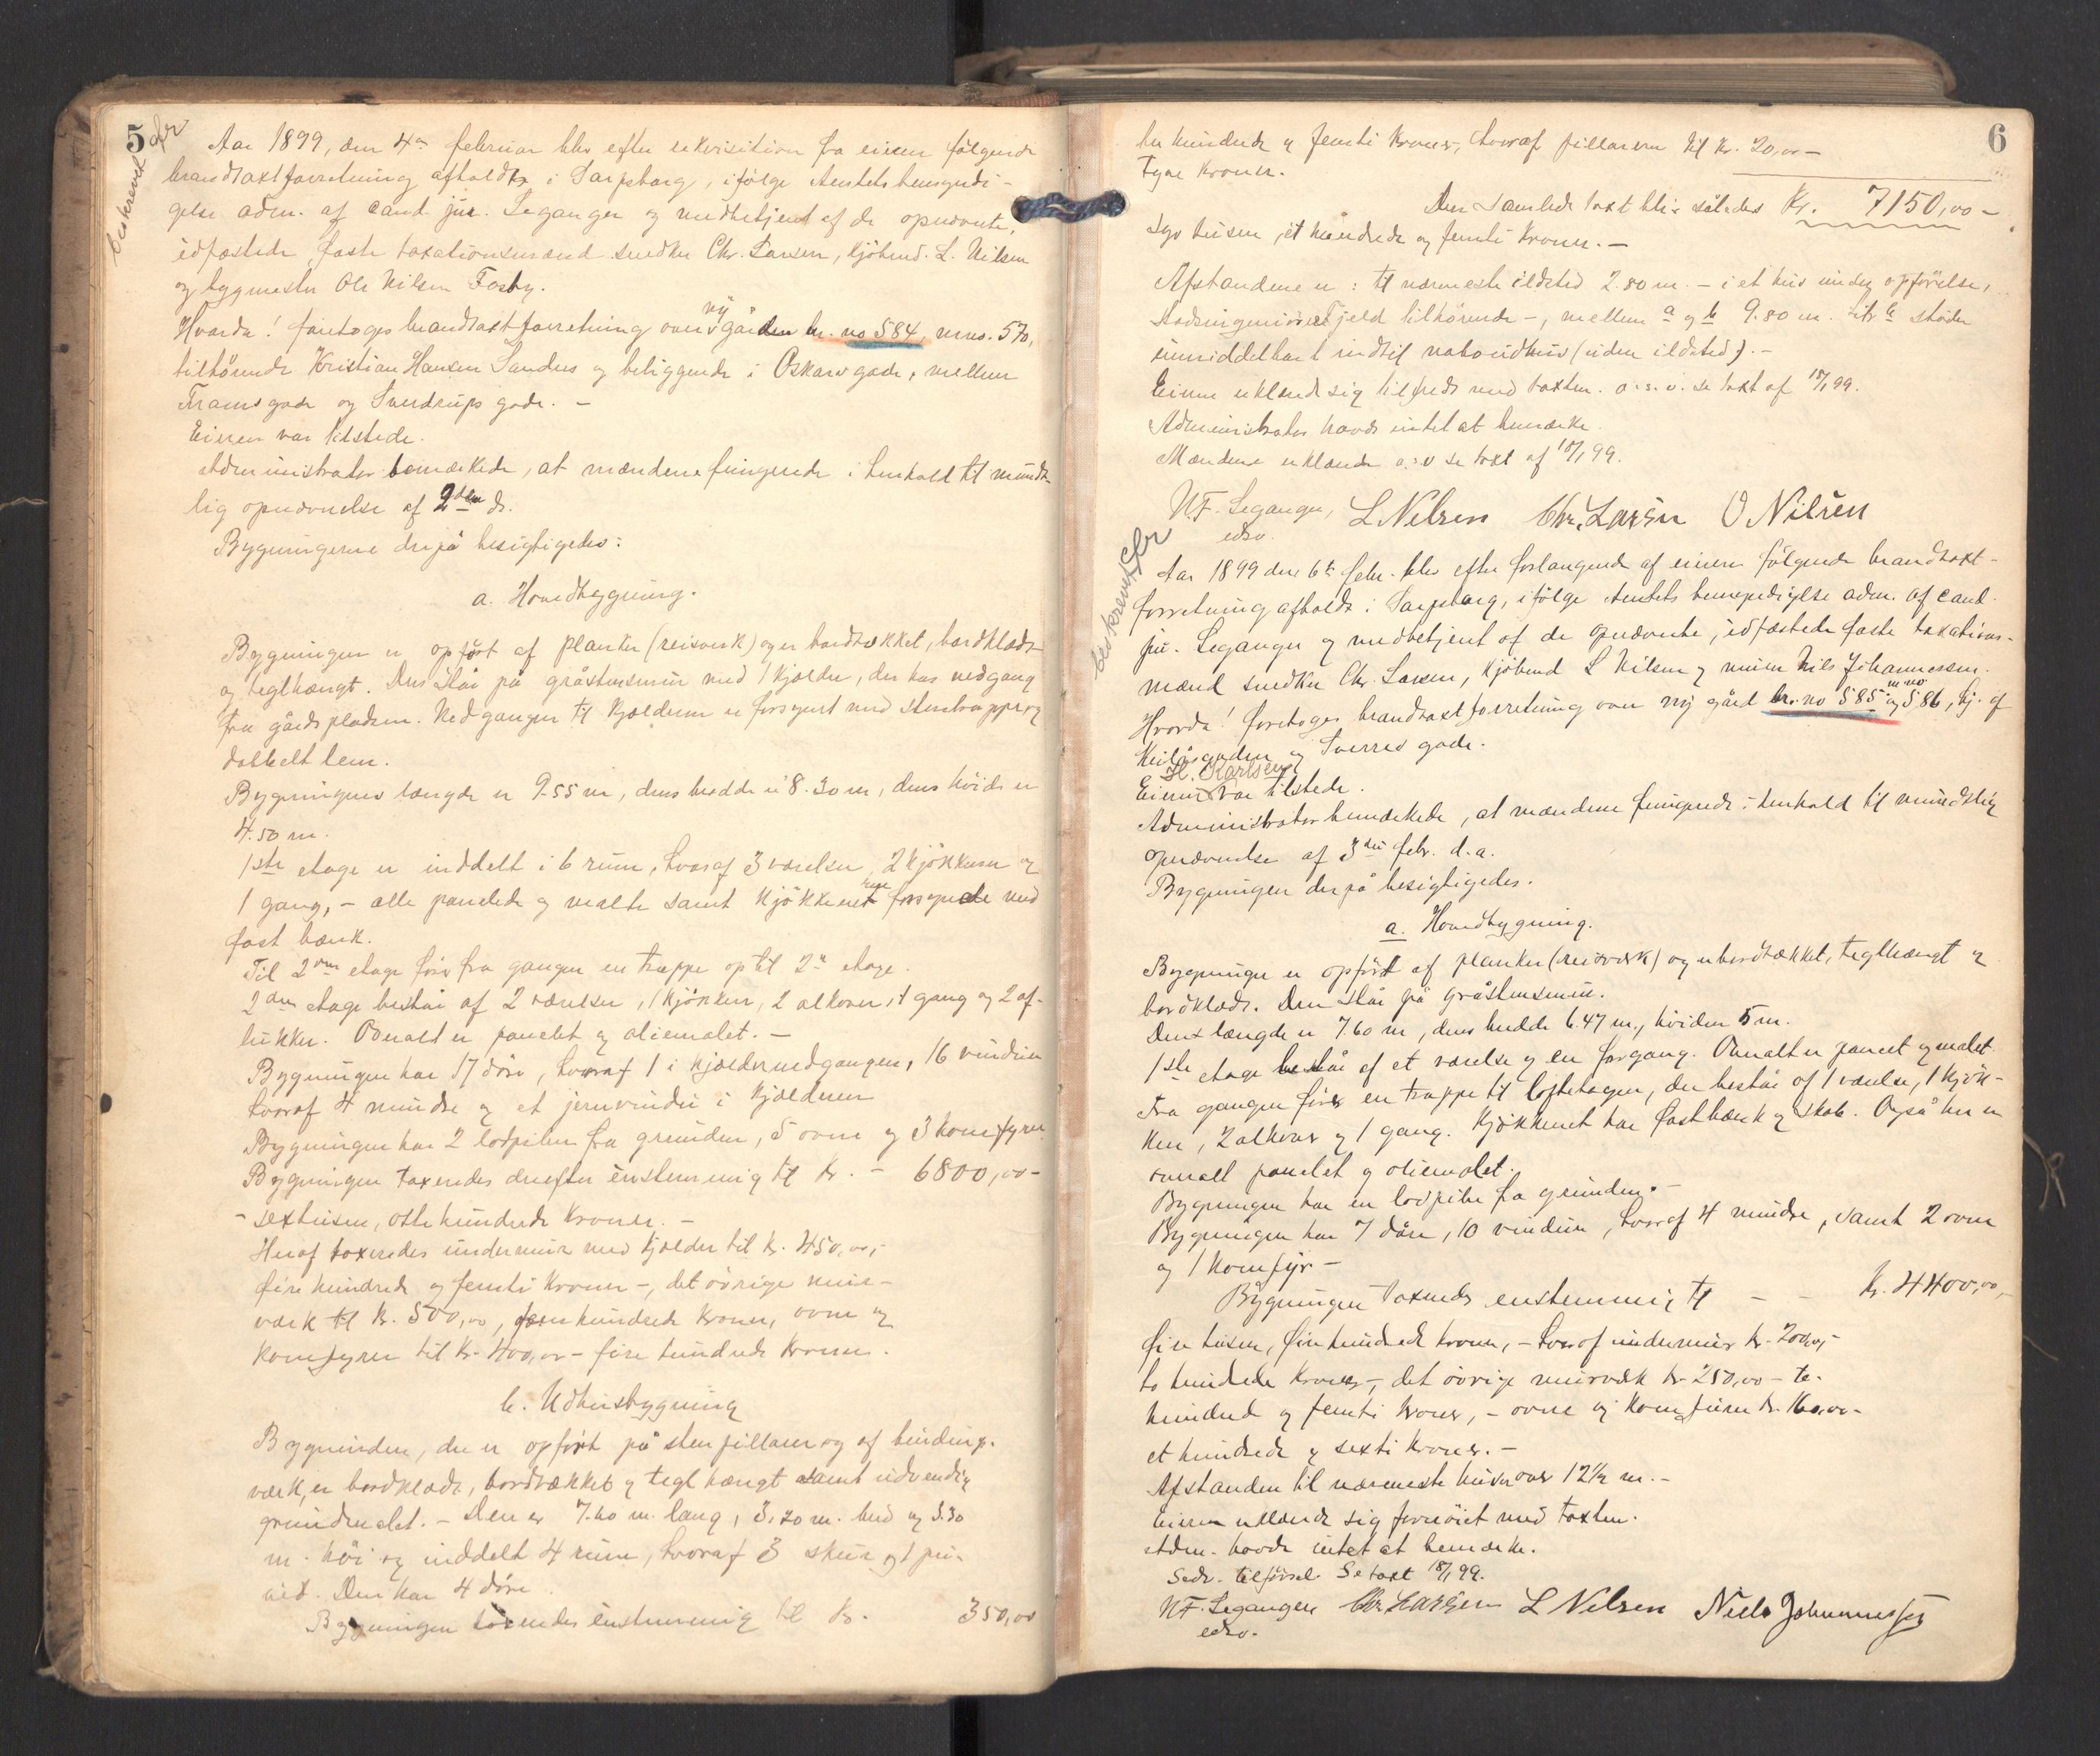 5
beskrevet
Aar 1899, den 4de februar blev efter rekvisition fra eieren følgende
brandtaxtforretning afholdt i Sarpsborg, ifølge Amtets bemyndi-
gelse adm. af cand. jur. Leganger og medbetjent af de opnævnte,
edfæstede, faste taxationsmænd snedker Chr. Larsen, kjøbmd. L. Nilsen
og bygmester Ole Nilsen Fosby.
Hvorda! foretoges brandtaxtforretning over ny gården br. no 584, mno. 570,
tilhørende Kristian Hansen Sandnes og beliggende i Oskars gade, mellem
Frams gade og Sverdrups gade. -
Eieren var tilstede.
Administrator bemærkede, at mændene fungerede i henhold til mundt-
lig opnævnelse af 2den ds.
Bygningerne derpå besigtigedes:
a. Hovedbygning.
Bygningen er opført af planker (reisverk) og er bordtækket, bordklædt
og teglhængt. Den står på gråstensmur med 1 kjælder, der har nedgang
fra gårdspladsen. Nedgangen til kjælderen er forsynet med stentrappe og
dobbelt lem.
Bygningens længde er 9.55 m, dens bredde er 8.30 m, dens høide er
4.50 m.
1ste etage er inddelt i 6 rum, hvoraf 3 værelser, 2 kjøkkener og
1 gang, - alle panelede og malte samt kjøkkenerne forsynede med
fast bænk.
Til 2den etage fører fra gangen en trappe op til 2n etage.
2den etage består af 2 værelser, 1 kjøkken, 2 alkover, 1 gang og 2 af-
lukker. Overalt er panelet og oliemalet. -
Bygningen har 17 døre, hvoraf 1 i kjældernedgangen, 16 vinduer
hvoraf 4 mindre og et jernvindu i kjælderen
Bygningen har 2 lodpiber fra grunden, 5 ovne og 3 komfyrer.
Bygningen taxeredes derefter enstemmig til Kr. - 6800,00 -
- sextusen, otte hundrede Kroner. -
Heraf taxeredes undermur med kjælder til Kr. 450,00,-
fire hundrede og femti Kroner -, det øvrige mur-
værk til Kr. 500,00, fem hundrede Kroner, ovne og
komfyrer til Kr. 400,00 - fire hundrede Kroner.
b. Udhusbygning
Bygninden, der er opført på stenpillarer og af bindings-
værk, er bordklædt, bordtækket og teglhængt samt udvendig
grundmalet. - Den er 7.60 m. lang, 3.20 m. bred og 3.30
m. høi og inddelt 4 rum, hvoraf 3 skur og 1 pri-
vet. Den har 4 døre.
Bygningen taxeredes enstemmig til Kr. 350,00
6
tre hundrede og femti Kroner, hvoraf pillarerne til Kr. 20,00 -
tyve Kroner.
Den samlede taxt blir således Kr. 7150,00 -
syv tusen, et hundrede og femti Kroner. -
Afstandene er: til nærmeste ildsted 2.80 m. - i et hus under opførelse,
stadsingeniør Fjeld tilhørende -, mellem a og b 9.80 m. litr. b støder
umiddelbart indtil nabo udhus (uden ildsted). -
Eieren erklærede sig tilfreds med taxten. o.s.v. se taxt af 18/1 99.
Administrator havde intet at bemærke.
Mændene erklærede o.s.v se taxt af 18/1 99.
N.F. Leganger, L Nilsen Chr. Larsen O Nilsen
edsv.
beskrevet
Aar 1899 den 6te febr. blev efter forlangende af eieren følgende brandtaxt-
forretning afholdt i Sarpsborg, ifølge Amtets bemyndigelse adm. af cand.
jur. Leganger og medbetjent af de opnævnte, edfæstede faste taxations-
mænd snedker Chr. Larsen, kjøbmd L Nilsen og murer Nils Johannessen.
Hvorda! foretoges brandtaxtforretning over ny gård br. no 585 m no og 586, hj. af
Keilåsgaden og Sverres gade.
H. Karlsen
Eieren var tilstede.
Administrator bemærkede, at mændene fungerede i henhold til mundtlig
opnævnelse af 3die febr. d.a.
Bygningen derpå besigtigedes.
a. Hovedbygning.
Bygningen er opført af planker (reisværk) og er bordtækket, teglhængt og
bordklædt. Den står på gråstensmur.
Dens længde er 7.60 m, dens bredde 6.47 m., høiden 5 m.
1ste etage består af et værelse og en forgang. Overalt er panelet og malet.
Fra gangen fører en trappe til loftetagen, der består af 1 værelse, 1 kjøk-
ken, 2 alkover og 1 gang. Kjøkkenet har fast bænk og skab. Også her er
overalt panelet og oliemalet.
Bygningen har en lodpibe fra grunden. -
Bygningen har 7 døre, 10 vinduer, hvoraf 4 mindre, samt 2 ovne
og 1 komfyr -
Bygningen taxeredes enstemmig til - - Kr. 4400,00,-
fire tusen, fire hundrede kroner, - hvoraf undermur Kr. 200,00,-
to hundrede Kroner -, det øvrige murværk Kr 250,00 - to-
hundred og femti Kroner, - ovne og komfuren Kr. 160,00 -
et hundrede og sexti Kroner. -
Afstanden til nærmeste hus er over 12½ m. -
Eieren erklærede sig fornøiet med taxten.
Adm. havde intet at bemærke.
Sedv. tilførsel. Se taxt 18/1 99.
N.F. Leganger Chr. Larsen L Nilsen Niels Johannessen
edsv.